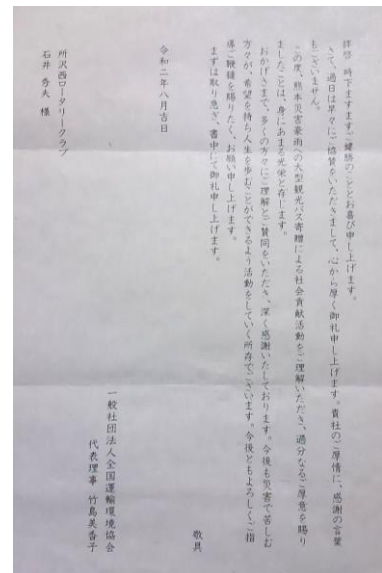 拝啓 時下ますますご健勝のこととお喜び申し上げます。
さて、過日は早々に、協賛をいただきまして、心から厚く御礼申し上げます。貴社のご厚情に、感謝の言葉
もございません。
この度、熊本災害豪雨への大型観光バス寄贈による社会貢献活動をご理解いただき、過分なるご厚意を賜り
ましたことは、身にあまる光栄と存じます。
おかげさまで、多くの方々にご理解とご賛同をいただき、深く感謝いたしております。今後も災害で苦しむ
方々が、希望を持ち人生を歩むことができるよう活動をしていく所存でございます。今後ともよろしくご指
導ご鞭撻を賜りたく、お願い申し上げます。
まずは取り急ぎ、書中にて御礼申し上げます。
敬具
令和二年八月吉日
一般社団法人全国運輸環境協会
代表理事 竹島美香子
所沢西ロータリークラブ
石井 秀夫 様